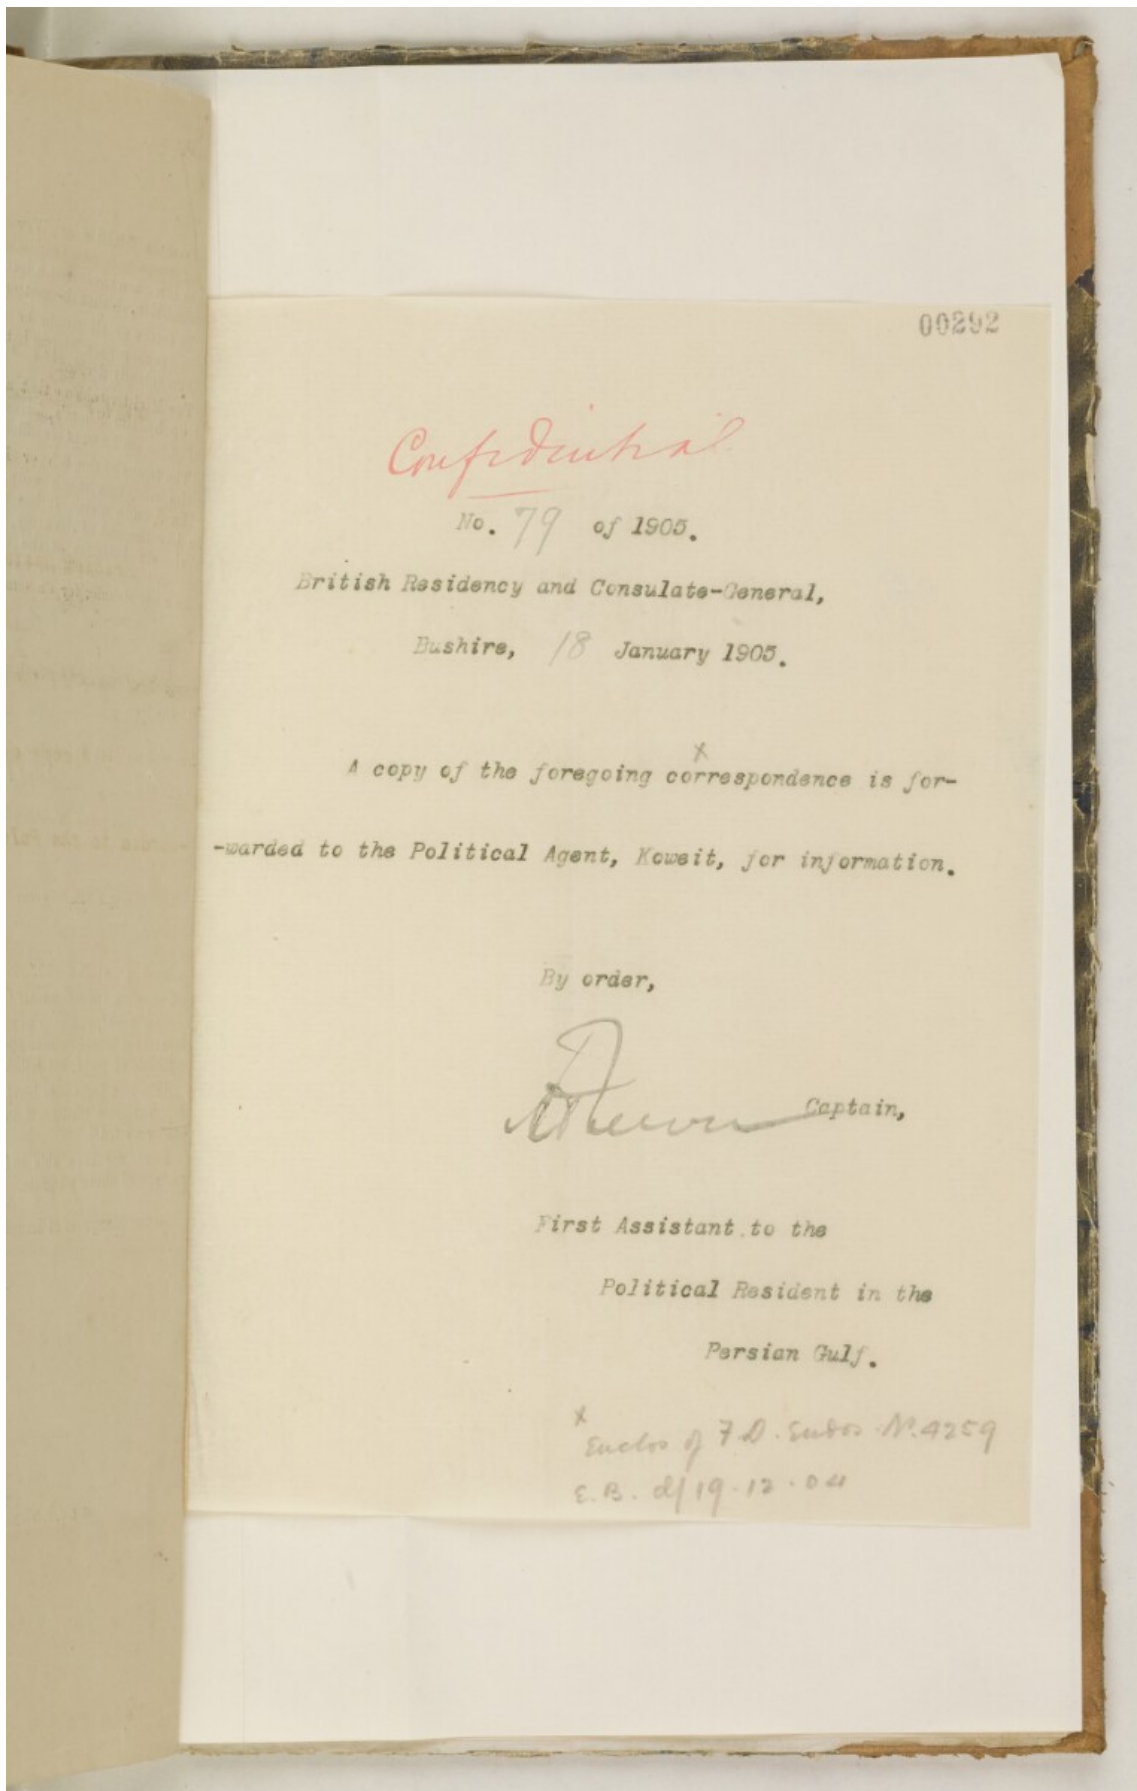 00292
Confidential
No. 79 of 1905.
British Residency and Consulate-General,
Bushire, 18 January 1905.
x
A copy of the foregoing correspondence is for-
-warded to the Political Agent, Koweit, for information.
By order,
Captain,
First Assistant to the
Political Resident in the
Persian Gulf.
x
Enclos of F.D. Endos. No. 4259
E.B. d/ 19.12.04